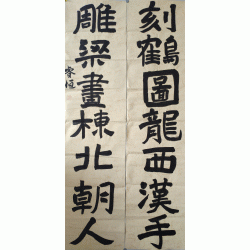 刻鶴圖龍西漢手
雕梁畫棟北朝人